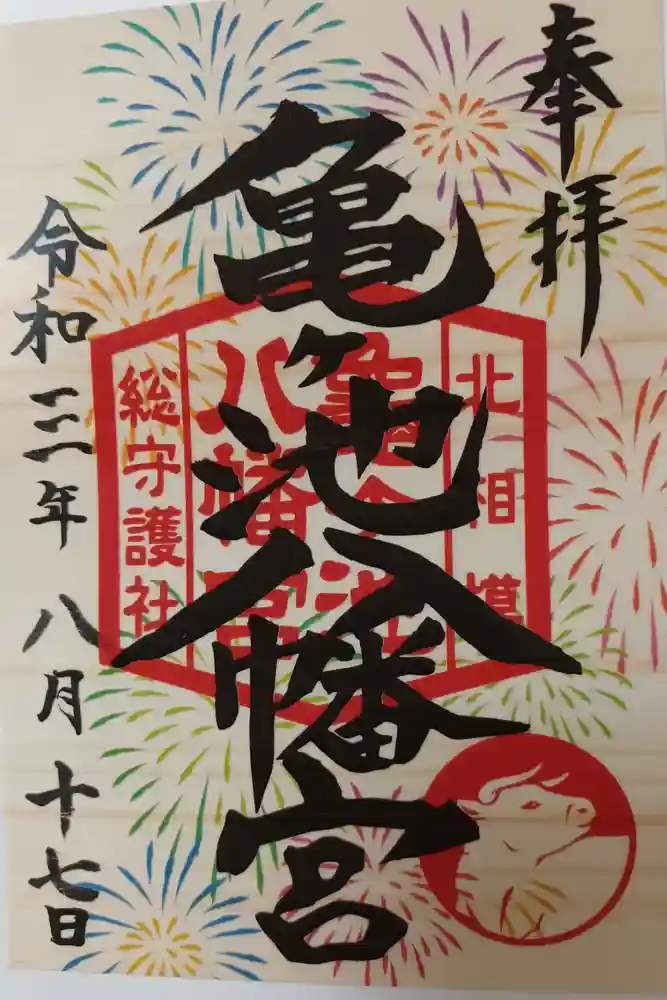 奉拝
亀ヶ池八幡宮
令和三年 八月十七日
北相模
亀ヶ池
八幡宮
総守護社